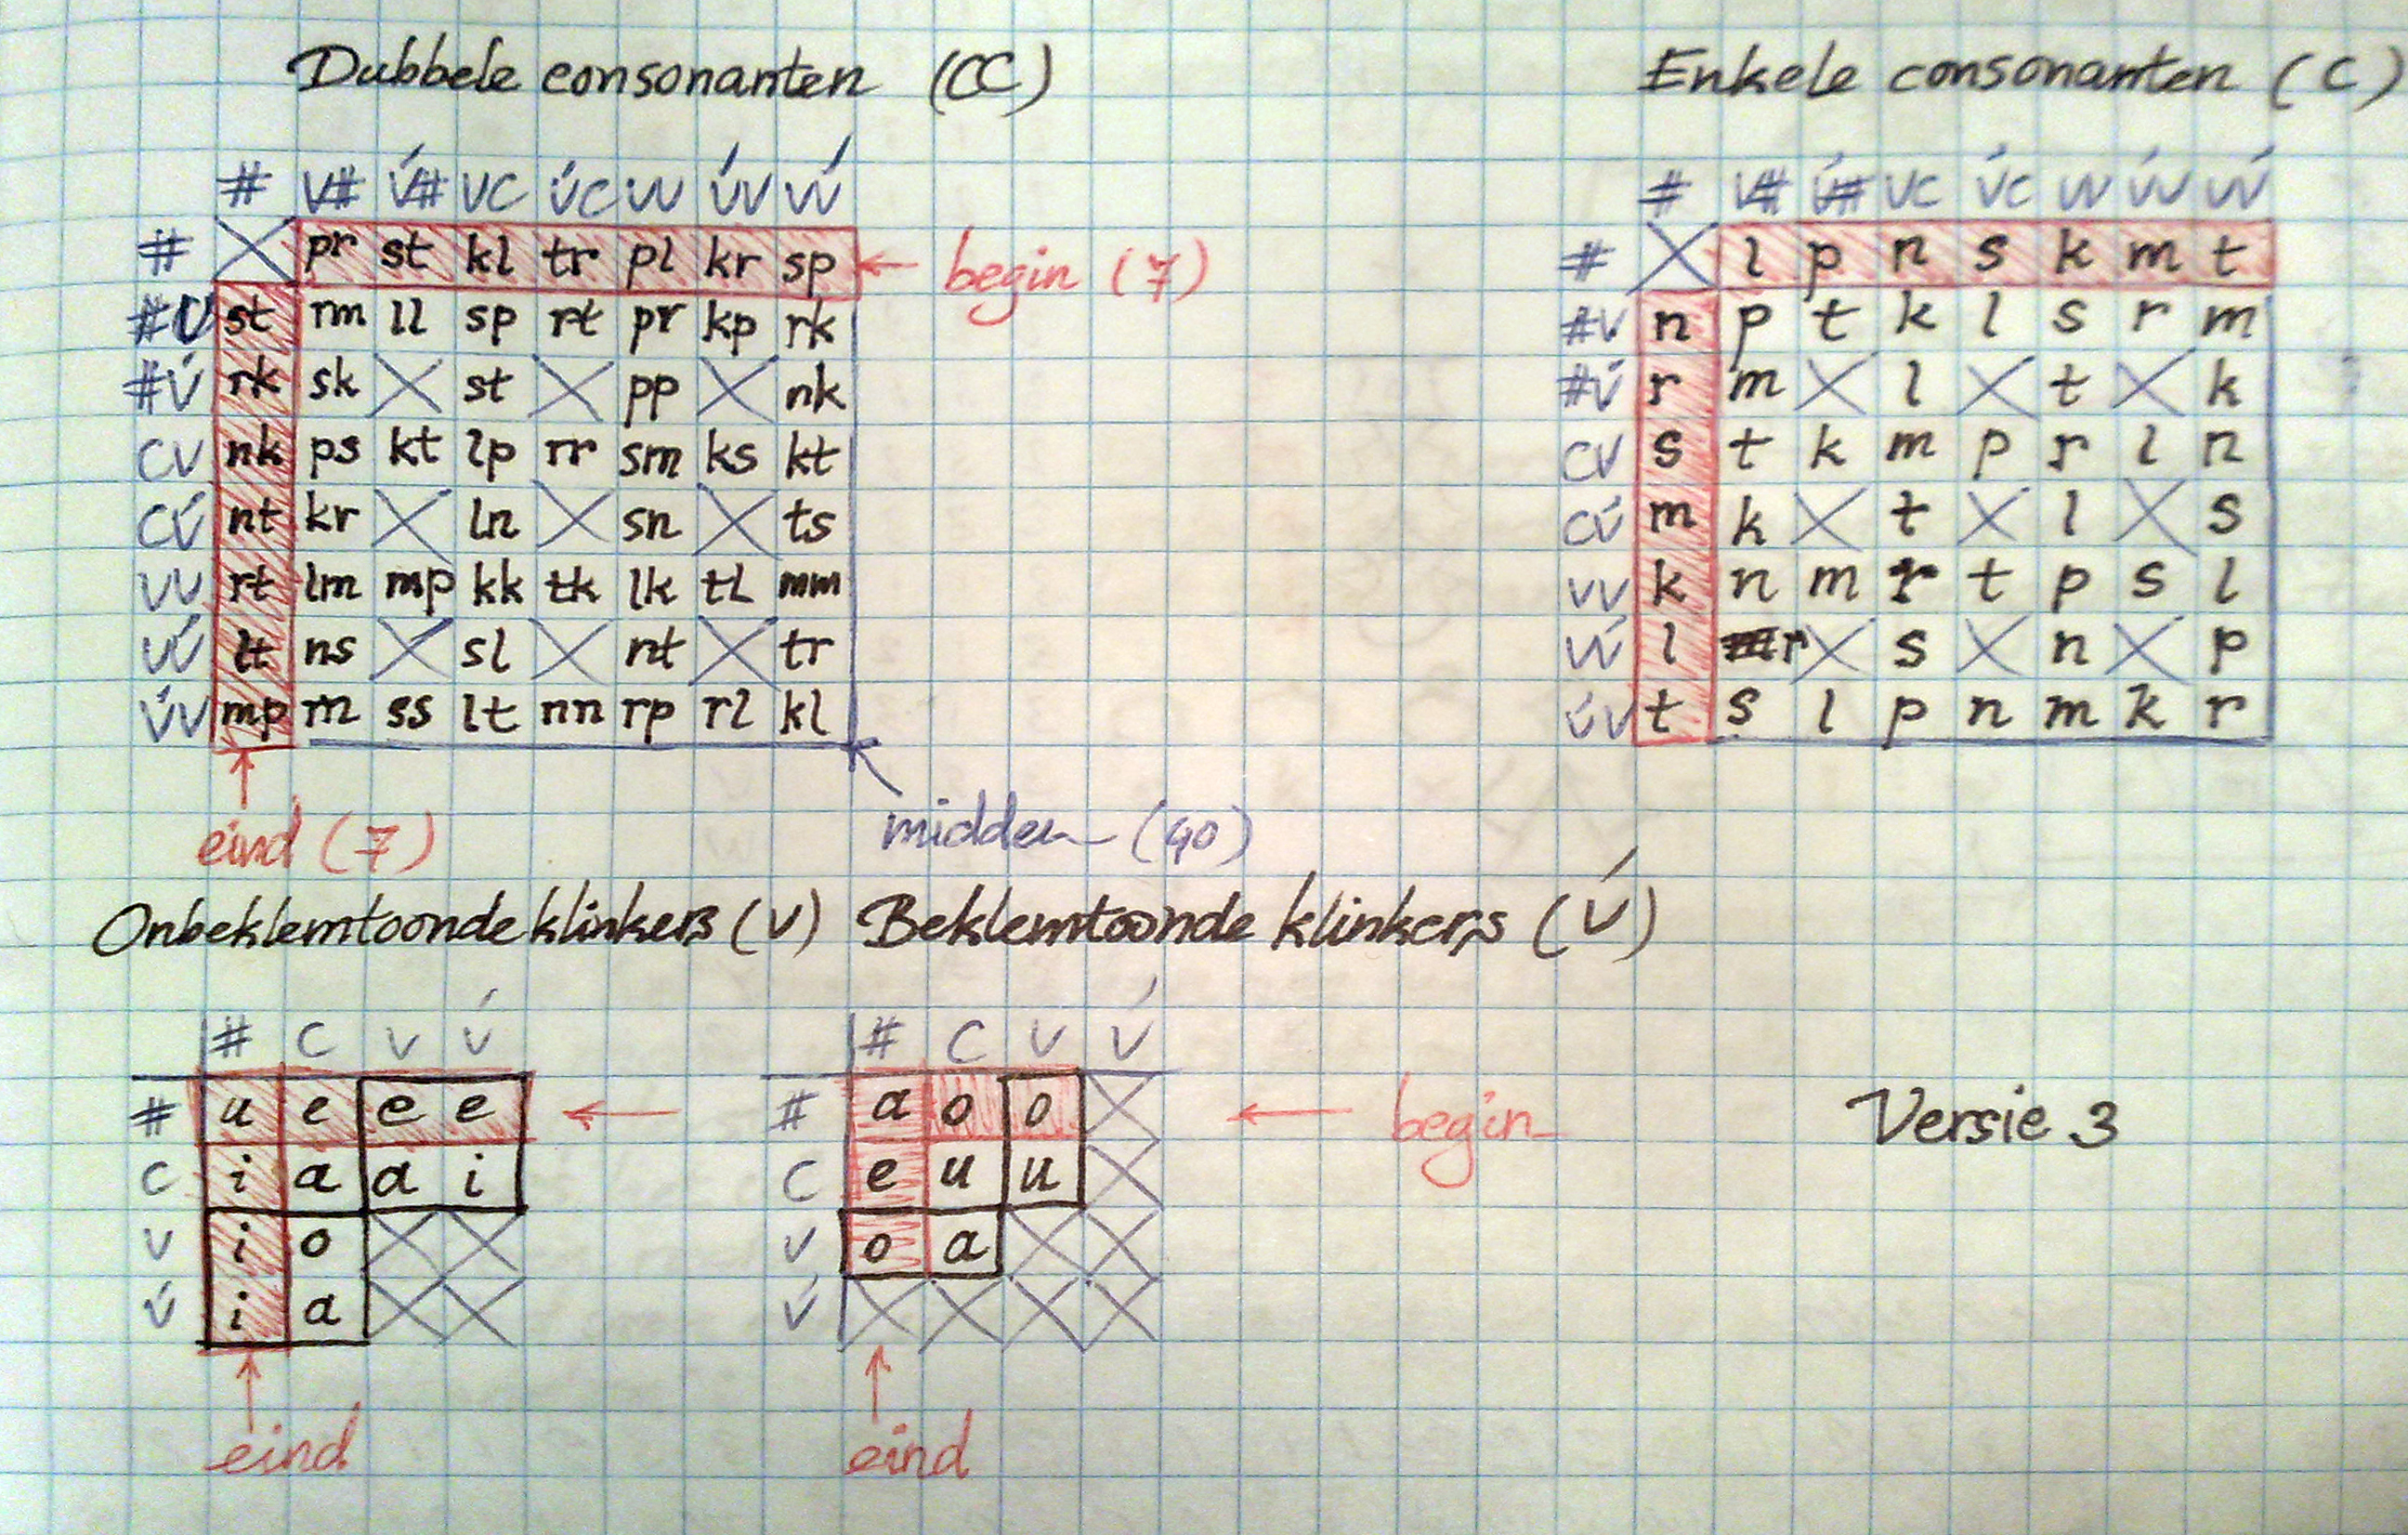 Dubbele consonanten (CC)
Enkele consonanten (C)
# V# V́# VC V́C VV V́V VV́
# pr st kl tr pl kr sp
begin (7)
#V st rm ll sp rt pr kp rk
#V́ rk sk st pp nk
CV nk ps kt lp rr sm ks kt
CV́ nt kr ln sn ts
VV rt lm mp kk tk lk tl mm
VV́ lt ns sl nt tr
V́V mp ss lt nn rp rl kl
eind (7)
midden (40)
# V# V́# VC V́C VV V́V VV́
# l p n s k m t
#V n p t k l s r m
#V́ r m l t k
CV s t k m p r l n
CV́ m k t l s
VV k n m r t p s l
VV́ l r s n p
V́V t s l p n m k r
Onbeklemtoonde klinkers (V)
Beklemtoonde klinkers (V́)
# C V V́
# u e e e
C i a a i
V i o
V́ i a
eind
# C V V́
# a o o
begin
C e u u
V o a
V́
eind
Versie 3